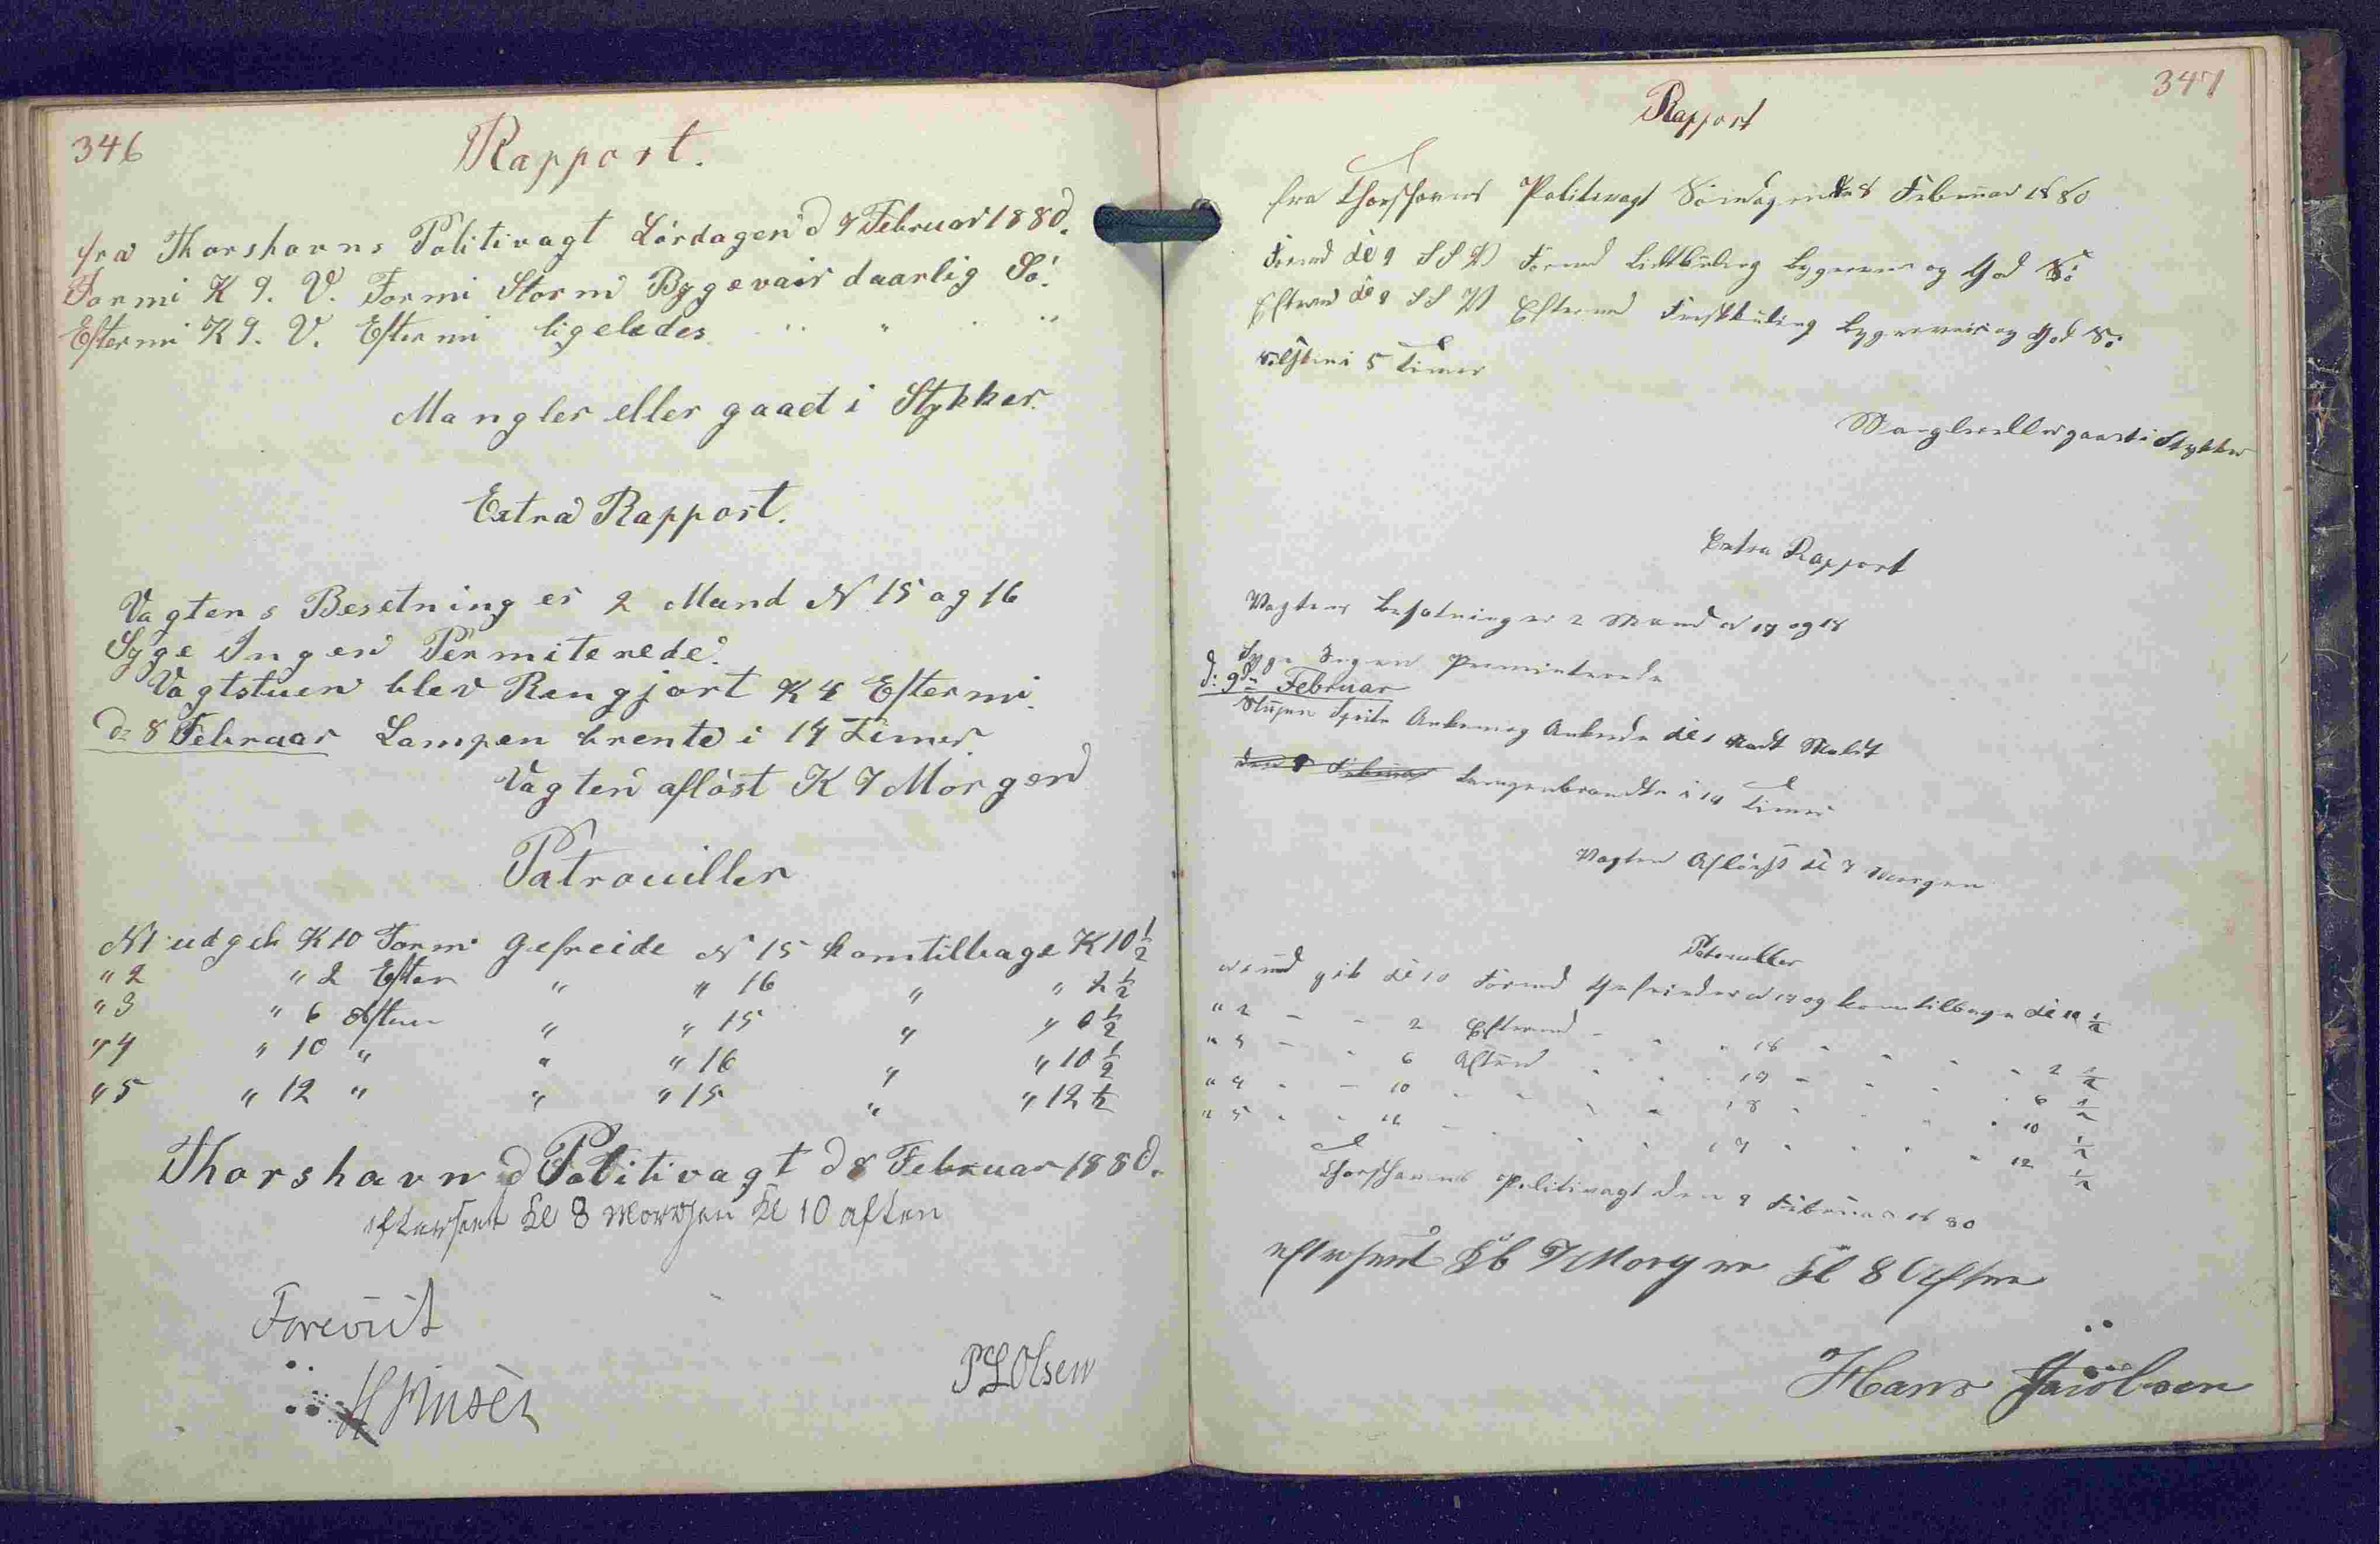 346
Rapport.
fra Thorshavns Politivagt Lördagen d 7 Februar 1880.
Formi K 9. V. Formi Storm Bygevair daarlig Sö.
Eftermi K 9. V. Eftermi ligeledes " " "
Mangler eller gaaet i Stykker.
Extra Rapport.
Vagtens Besetning er 2 Mand N 15 og 16
Syge Ingen Permiterede.
Vagtstuen blev Rengjort K 4 Eftermi.
d. 8 Februar Lampen brente i 14 Timer.
Vagten aflöst K 7 Morgen
Patrouiller
N 1 udgik K 10 Form Gefreide N 15 kom tilbage K 10 1/2
" 2 " 2 Efter " " 16 " " 2 1/2
" 3 " 6 Aften " " 15 " " 6 1/2
" 4 " 10 " " " 16 " " 10 1/2
" 5 " 12 " " " 15 " " 12 1/2
Thorshavn d Politivagt d 8 Februar 1880.
efterseet Kl 8 Morgen Kl 10 aften
Forevist
P L Olsen
347
Rapport
fra Thorshavns Politivagt Söndagen den 8 Februar 1880
Formd Kl 9 SSV Formd Lidtkuling Bygeveir og God Sö
Eftermd Kl 9 SSV Eftermd Friskkuling Bygeveir og God Sö
5 Timer
Mangler eller gaaet i Stykker
Extra Rapport
Vagtens Besætning er 2 Mand N 17 og 18
Syge Ingen Perminterede
d: 9de Februar
Ankom og Ankrede Kl 1
den 8 Februar Lampen brændte i 14 Timer
Vagten Aflöst Kl 7 Morgen
Patruller
N 1 ud gik Kl 10 Formd Gefreider N 17 og kom tilbage Kl 10 1/2
" 2 - - 2 Eftermd - - - 18 - - - 2 1/2
" 3 - - 6 Aften - - - 17 - - - 6 1/2
" 4 - - 10 - - - - 18 - - - 10 1/2
" 5 - - 12 - - - - 17 - - - 12 1/2
Thorshavns Politivagt den 9 Februar 1880
efterseet Kl 7 Morgen Kl 8 Aften
Hans